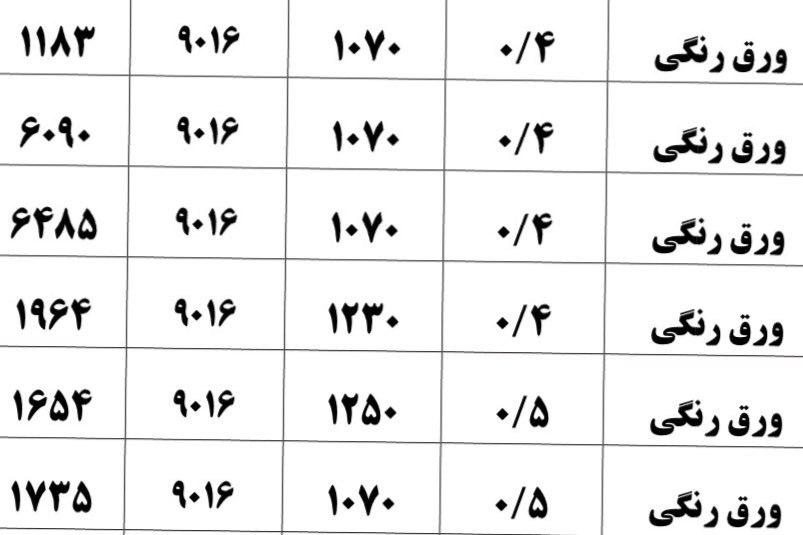 ورق رنگی ۰/۴ ۱۰۷۰ ۹۰۱۶ ۱۱۸۳
ورق رنگی ۰/۴ ۱۰۷۰ ۹۰۱۶ ۶۰۹۰
ورق رنگی ۰/۴ ۱۰۷۰ ۹۰۱۶ ۶۴۸۵
ورق رنگی ۰/۴ ۱۲۳۰ ۹۰۱۶ ۱۹۶۴
ورق رنگی ۰/۵ ۱۲۵۰ ۹۰۱۶ ۱۶۵۴
ورق رنگی ۰/۵ ۱۰۷۰ ۹۰۱۶ ۱۷۳۵